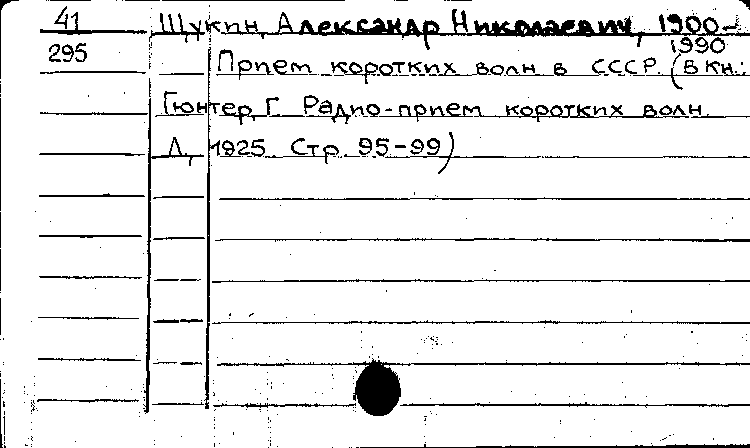 41 Щукин, Александр Николаевич, 1900-
1990
295 Прием коротких волн в СССР. (В кн.:
Гюнтер, Г. Радио-прием коротких волн.
Л., 1925. Стр. 95-99)